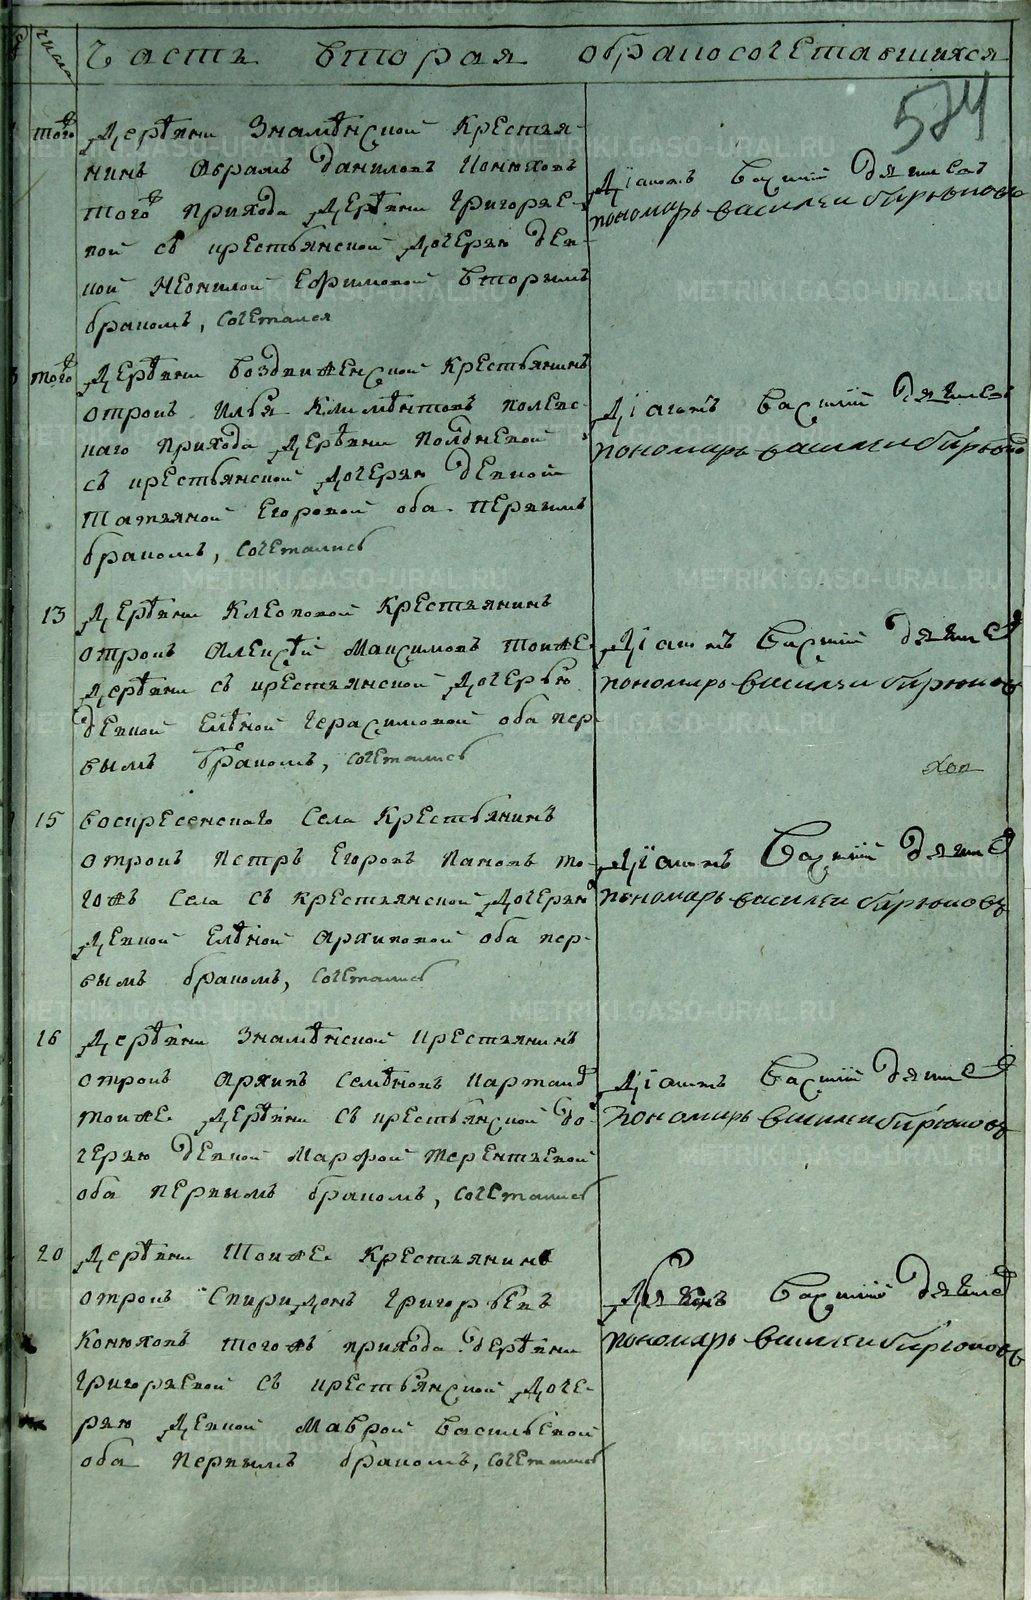 число Часть вторая о бракосочетавшихся
574
того Деревни Знаменской крестья-
нинъ Абрамъ Даниловъ Конюховъ
того прихода Деревни Григорье-
вой съ крестьянской дочерью дев-
кой Неонилой Ефимовой вторымъ
бракомъ, сочетался
Діаконъ Василій
пономарь василеи бирюковъ
того Деревни воздвиженской крестьянинъ
отрокъ Илья Климентовъ полевс-
каго прихода Деревни полдневой
съ крестьянской дочерью девкой
Татьяной Егоровой оба первымъ
бракомъ, сочетались
Діаконъ Василій
пономарь василеи бирюков
13 Деревни Клеоповой крестьянинъ
отрокъ Алексей Максимовъ тоиже
деревни съ крестьянской дочерью
девкой Еленой Герасимовой оба пер-
вымъ бракомъ, сочетались
Діаконъ Василій
пономарь василеи бирюковъ
15 воскресенскаго села крестьянинъ
отрокъ Петръ Егоровъ Пановъ то-
гожъ села съ крестьянской дочерью
девкой Еленой Архиповой оба пер-
вымъ бракомъ, сочетались
Діаконъ Василій
пономарь василеи бирюковъ
16 Деревни Знаменской крестьянинъ
отрокъ Архипъ Семеновъ
тоиже деревни съ крестьянской до-
черью девкой Марфой Терентьевой
оба первымъ бракомъ, сочетались
Діаконъ Василій
пономарь василеи бирюковъ
20 Деревни тоиже крестьянинъ
отрокъ Спиридонъ Григорьевъ
Конюховъ тогожъ прихода деревни
Григорьевой съ крестьянской доче-
рью девкой Маврой васильевой
оба первымъ бракомъ, сочетались
Василій
пономарь василеи бирюковъ
METRIKI.GASO-URAL.RU